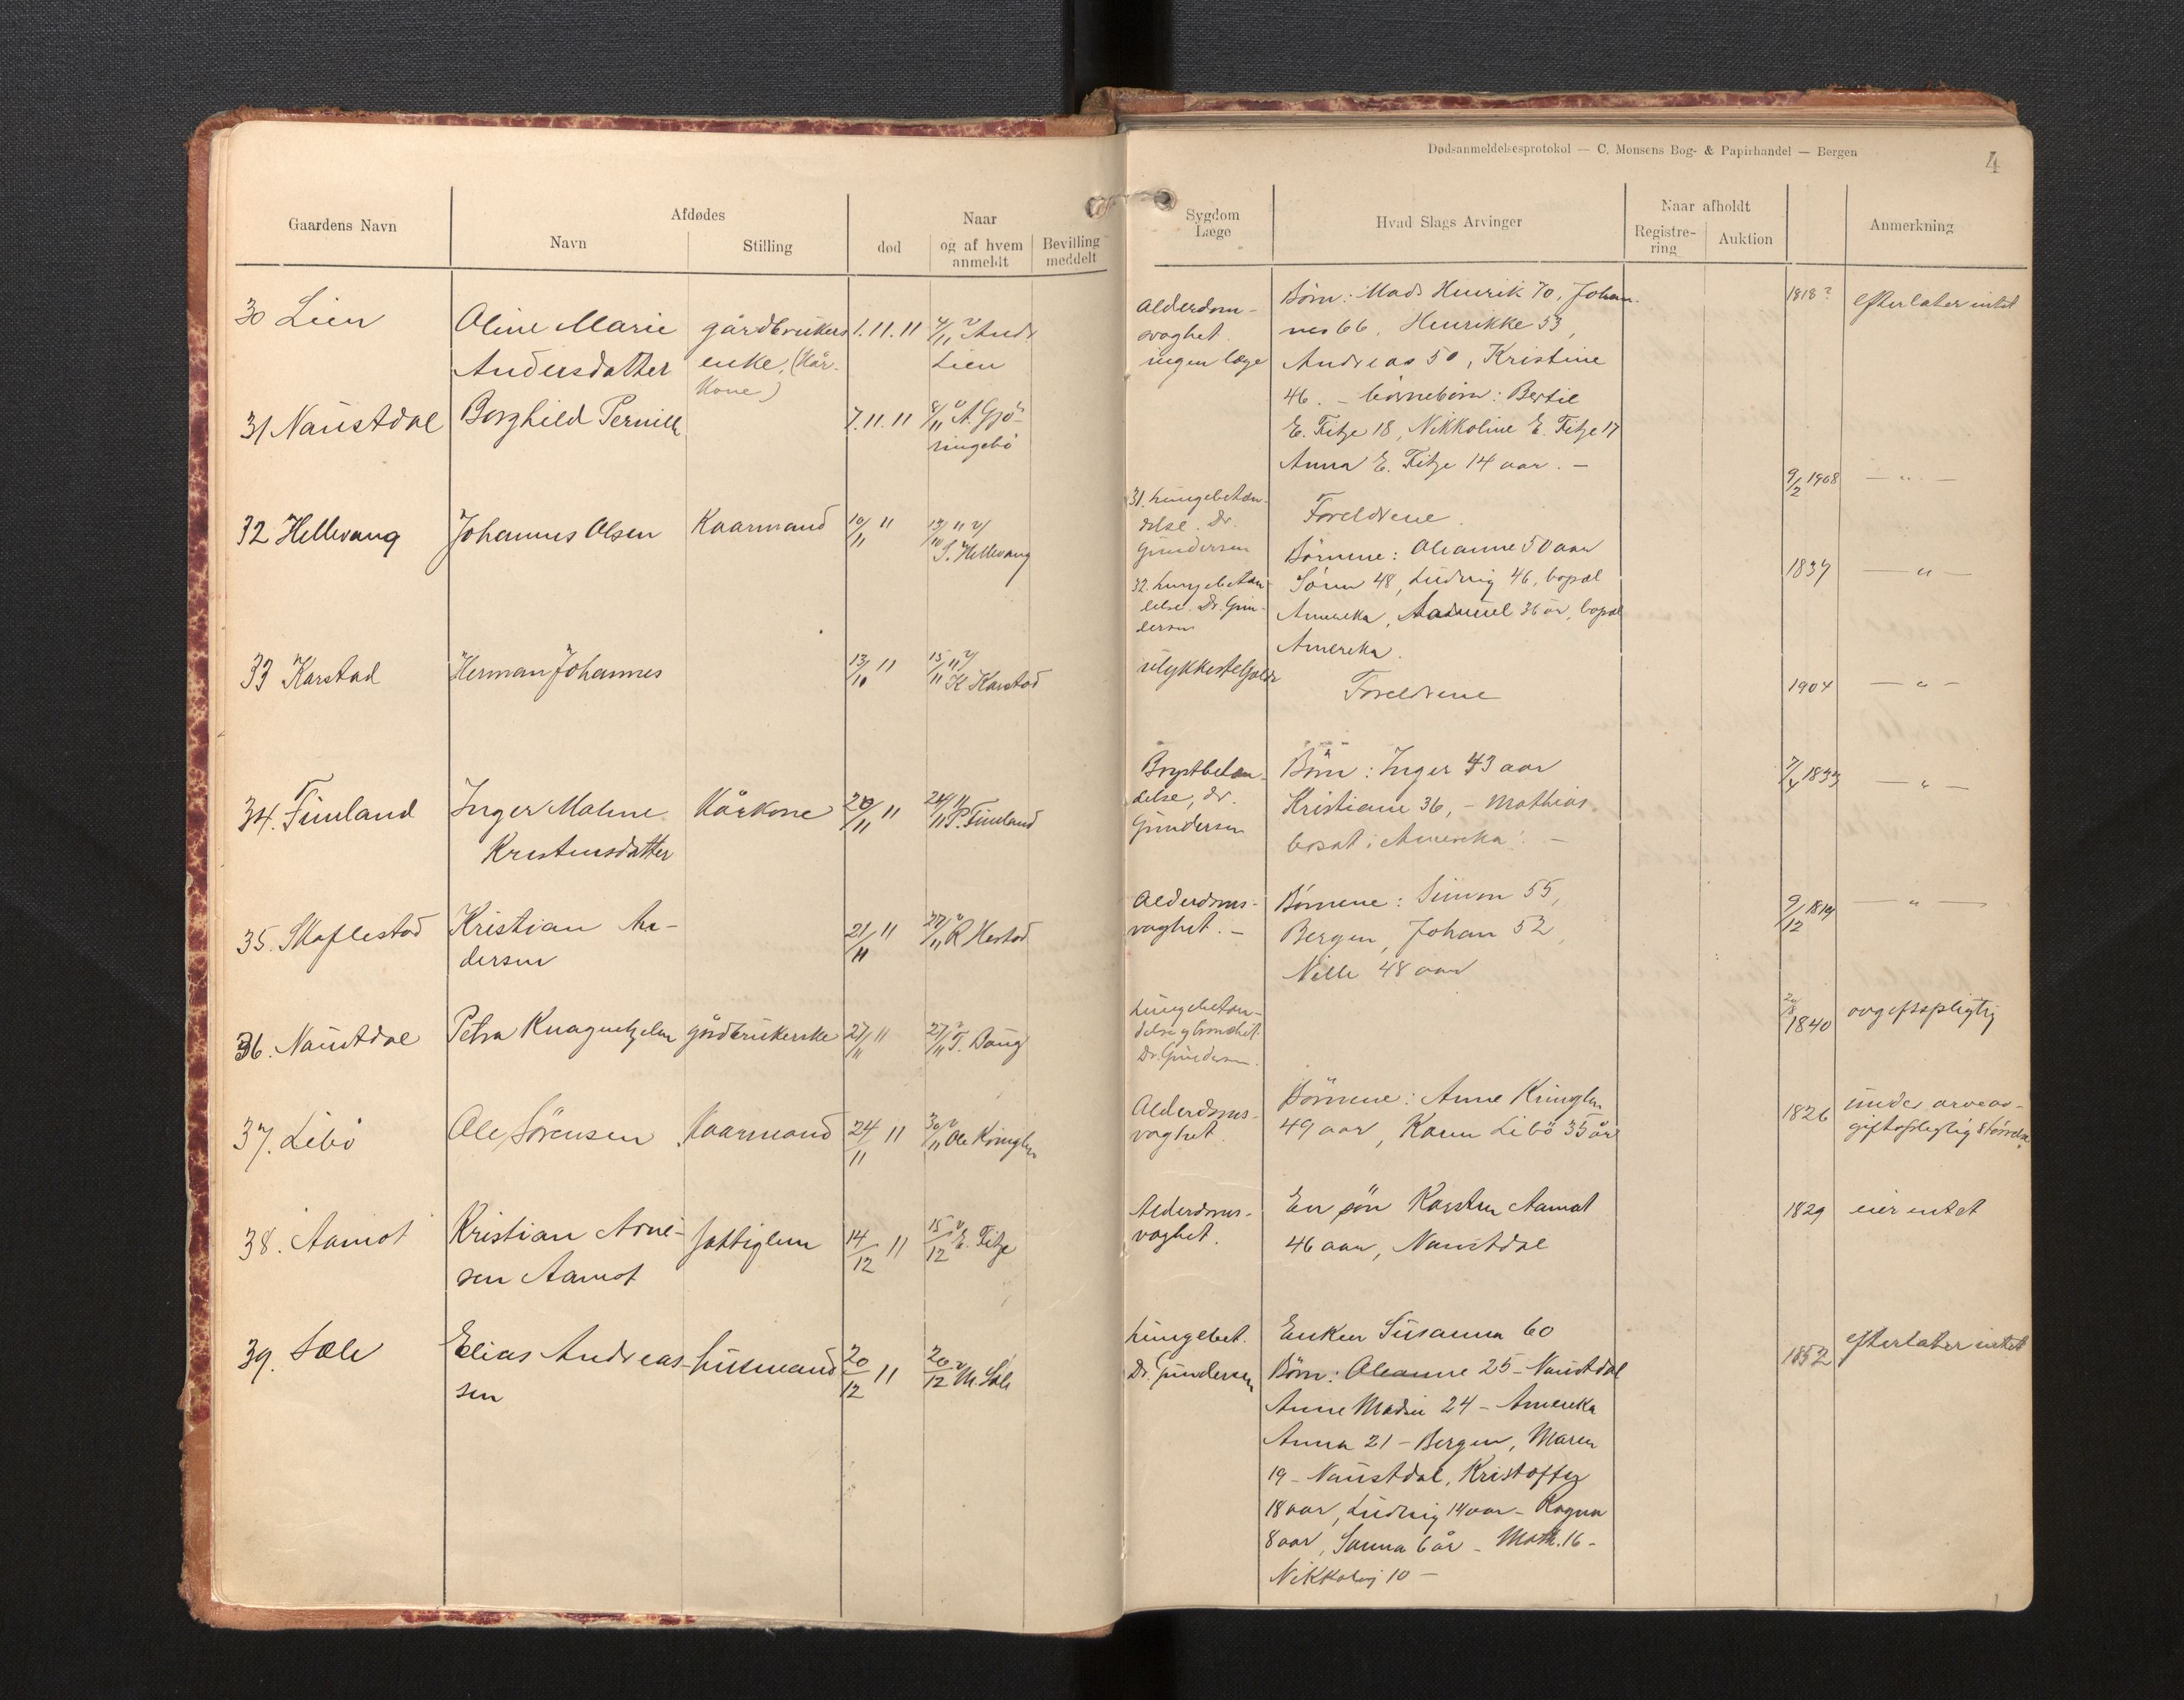 Dødsanmeldelsesprotokol — C. Monsens Bog- & Papirhandel — Bergen
4
Gaardens Navn
Afdødes
Navn
Stilling
Naar
død
og af hvem anmeldt
Bevilling meddelt
Sygdom
Læge
Hvad Slags Arvinger
Naar afholdt
Registre-
ring
Auktion
Anmerkning
30 Lien
Oline Marie
Andersdatter
gårdbrukers
enke, (Kår-
kone)
1.11.11
4/11 v Andr
Lien
Alderdom-
svaghet.
ingen læge
Börn: Mads Henrik 70, Johan-
nes 66, Henrikke 53,
Andreas 50, Kristine
46. – börnebörn: Bertil
E. Fitje 18, Nikkoline E. Fitje 17
Anna E. Fitje 14 aar. –
1818?
efterlater intet
31 Naustdal
Borghild Pernille
7.11.11
8/11 v A. Gjö-
ringebö
31. lungebetæn-
delse. Dr.
Gundersen
Foreldrene.
9/2 1908
— " —
32 Hellevang
Johannes Olsen
Kaarmand
10/11 11
13/11 11 v/
S. Hellevang
32. lungebetæn-
delse. Dr. Gun-
dersen
Börnene: Oleanne 50 aar
Sönn 48, Ludvig 46, bopæl
Amerika, 36 år, bopæl
Amerika.
1837
— " —
33 Karstad
Herman Johannes
13/10 11
15/11 11 v/
K Karstad
ulykkestilfælde
Foreldrene
1904
— " —
34. Fimland
Inger Maline
Kristensdatter
Kårkone
20/11 11
24/11 11
P. Fimland
Brystbetæn-
delse, dr.
Gundersen
Börn: Inger 43 aar
Kristiane 36, – Mathias
bosat i Amerika. –
7/4 1833
— " —
35. Skaflestad
Kristian An-
dersen
21/11 11
22/11 v R Hestad
Alderdoms-
svaghet. –
Börnene: Simon 55,
Bergen, Johan 52,
Nille 48 aar
9/12 1819
— " —
36. Naustdal
Petra Knagenhjelm
gårdbrukerske
21/11 11
27/11 v T. Daug
lungebetæn-
Dr. Gundersen.
1840
avgiftspligtig
37. Libö
Ole Sörensen
Kaarmand
24/11 11
30/11 v Ole Kringlen
Alderdoms-
svaghet.
Börnene: Anne Kringlen
49 aar, Karen Libö 35 år
1826
under arveav-
giftspligtig störrelse
38. Aamot
Kristian Arne-
sen Aamot
fattiglem
14/12 11
15/12 v E. Fitje
Alderdoms-
svaghet.
En sön Karsten Aamot
46 aar, Naustdal
1829
eier intet
39. Sæle
Elias Andreas-
sen
husmand
20/12 11
20/12 v M. Sæle
lungebet.
Dr. Gundersen
Enken Susanna 60
Börn: Oleanne 25 – Naustdal
Anne Madsi 24 – Amerika
Anna 21 – Bergen, Maren
19 – Naustdal, Kristoffer
18 aar, Ludvig 14 aar – Ragna
8 aar, Sanna 6 år – Math. 16 –
Nikkolaj 10 –
1852
efterlater intet